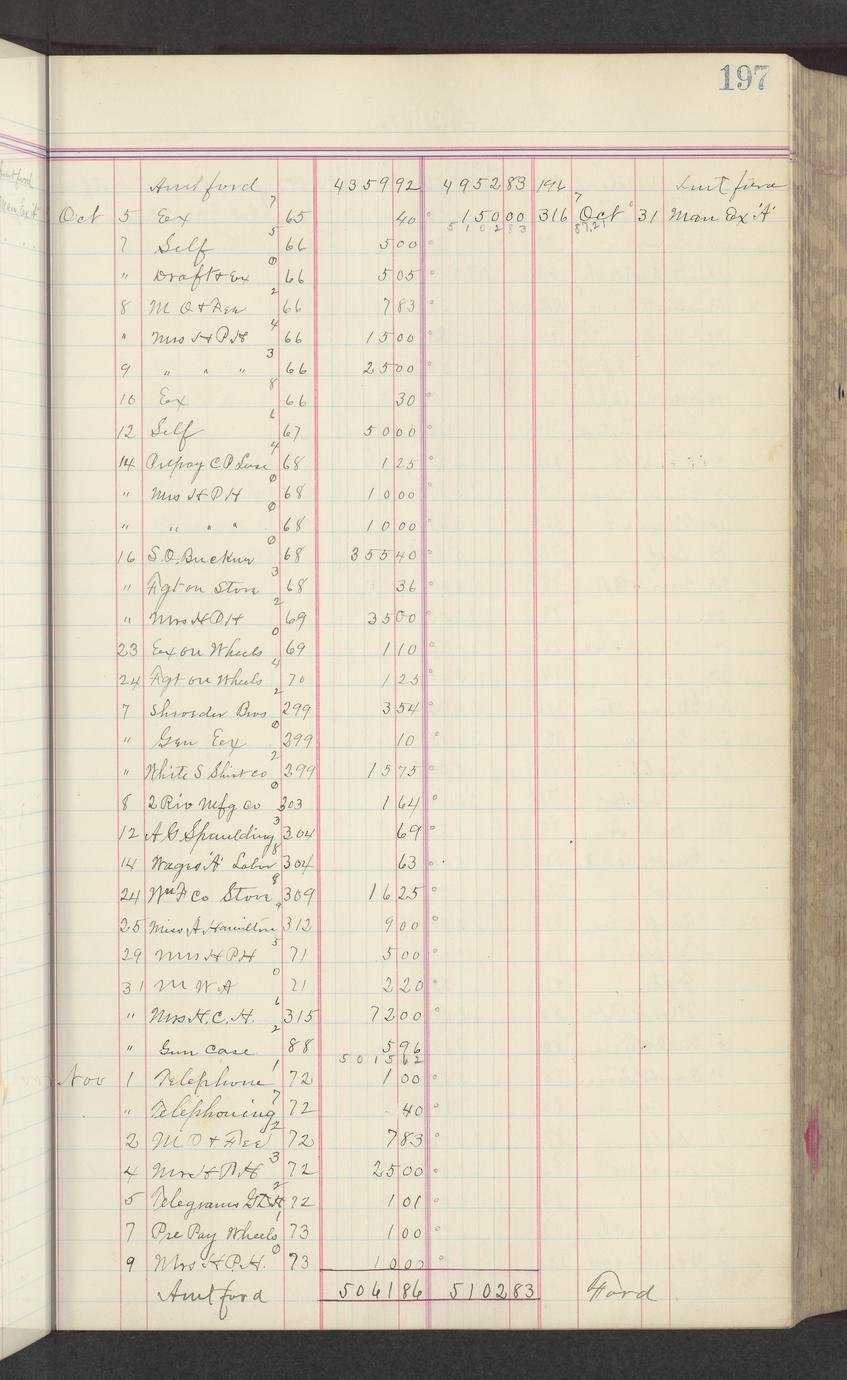 197
Amtford 4359 92 4952 83 196 Amt ford
Oct 5 Ex 7 65 40 150 00 316 7 Oct 31 Man Ex "A"
7 Self 5 66 5 00 5102 83 87.21
" Draft & Ex 0 66 5 05
8 M O & Fee 2 66 7 83
" Mrs H P H 4 66 15 00
9 " " " 3 66 25 00
10 Ex 8 66 30
12 Self 6 67 50 00
14 Prepay C P Luse 4 68 1 25
" Mrs H P H 0 68 10 00
" " " " 0 68 10 00
16 S.O. Buckner 0 68 355 40
" Fgt on Stove 3 68 36
" Mrs H P H 2 69 35 00
23 Ex on Wheels 0 69 1 10
24 Fgt on Wheels 4 70 1 25
7 Shroeder Bros 2 299 3 54
" Gen Ex 0 299 10
" White S Shirt co 2 299 15 75
8 2 Riv Mfg Co 0 303 1 64
12 A G Spaulding 3 304 69
14 Wages "A" Labor 8 304 63
24 Wm F Co Stove 8 309 16 25
25 Miss A Hamilton 9 312 9 00
29 Mrs H P H 5 71 5 00
31 M W A 0 71 2 20
" Mrs H. C. H. 6 315 72 00
" Gun Case 2 88 5 96
5015 62
Nov 1 Telephone 1 72 1 00
" Telephoning 7 72 40
2 M O & Fee 2 72 7 83
4 Mrs H P H 3 72 25 00
5 Telegrams G D H 2 72 1 01
7 Pre Pay Wheels 1 73 1 00
9 Mrs H P H. 0 73 10 00
Amt ford 5061 86 5102 83 Ford